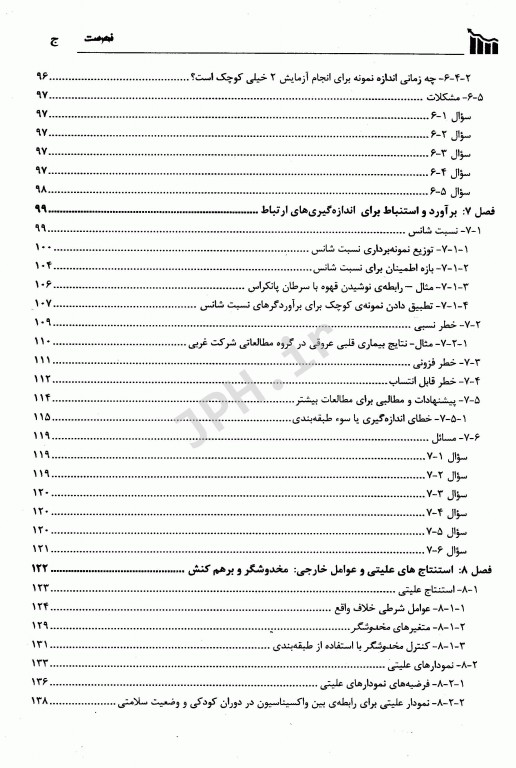 فهرست ج
۶-۴-۲- چه زمانی اندازه نمونه برای انجام آزمایش ۲ خیلی کوچک است؟ ۹۶
۶-۵- مشکلات ۹۷
سؤال ۱-۶ ۹۷
سؤال ۲-۶ ۹۷
سؤال ۳-۶ ۹۷
سؤال ۴-۶ ۹۷
سؤال ۵-۶ ۹۸
فصل ۷: برآورد و استنباط برای اندازه‌گیری‌های ارتباط ۹۹
۷-۱- نسبت شانس ۹۹
۷-۱-۱- توزیع نمونه‌برداری نسبت شانس ۱۰۰
۷-۱-۲- بازه اطمینان برای نسبت شانس ۱۰۴
۷-۱-۳- مثال – رابطه‌ی نوشیدن قهوه با سرطان پانکراس ۱۰۶
۷-۱-۴- تطبیق دادن نمونه‌ی کوچک برای برآوردگرهای نسبت شانس ۱۰۷
۷-۲- خطر نسبی ۱۰۹
۷-۲-۱- مثال- نتایج بیماری قلبی عروقی در گروه مطالعاتی شرکت غربی ۱۱۰
۷-۳- خطر فزونی ۱۱۱
۷-۴- خطر قابل انتساب ۱۱۲
۷-۵- پیشنهادات و مطالبی برای مطالعات بیشتر ۱۱۴
۷-۵-۱- خطای اندازه‌گیری یا سوء طبقه‌بندی ۱۱۵
۷-۶- مسائل ۱۱۹
سؤال ۱-۷ ۱۱۹
سؤال ۲-۷ ۱۱۹
سؤال ۳-۷ ۱۲۰
سؤال ۴-۷ ۱۲۰
سؤال ۵-۷ ۱۲۰
سؤال ۶-۷ ۱۲۱
فصل ۸: استنتاج های علیتی و عوامل خارجی: مخدوشگر و برهم کنش ۱۲۲
۸-۱- استنتاج علیتی ۱۲۳
۸-۱-۱- عوامل شرطی خلاف واقع ۱۲۴
۸-۱-۲- متغیرهای مخدوشگر ۱۲۹
۸-۱-۳- کنترل مخدوشگر با استفاده از طبقه‌بندی ۱۳۱
۸-۲- نمودارهای علیتی ۱۳۳
۸-۲-۱- فرضیه‌های نمودارهای علیتی ۱۳۶
۸-۲-۲- نمودار علیتی برای رابطه‌ی بین واکسیناسیون در دوران کودکی و وضعیت سلامتی ۱۳۸
JPH.ir